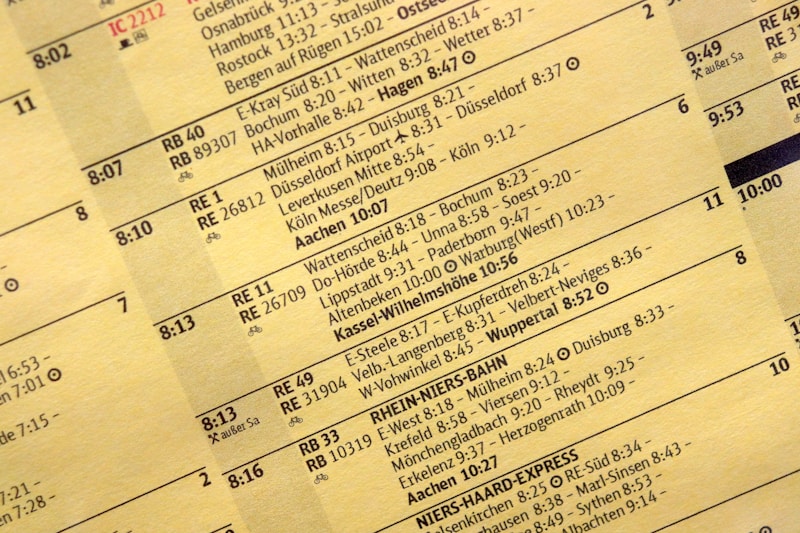 8:02
IC 2212
Osnabrück
Hamburg 11:13 – Stralsund
Rostock 13:32 –
Bergen auf Rügen 15:02 – Ostsee
11
2
8:07
RB 40
RB 89307
E-Kray Süd 8:11 – Wattenscheid 8:14 –
Bochum 8:20 – Witten 8:32 – Wetter 8:37 –
HA-Vorhalle 8:42 – Hagen 8:47
8
6
8:10
RE 1
RE 26812
Mülheim 8:15 – Duisburg 8:21 –
Düsseldorf Airport 8:31 – Düsseldorf 8:37
Leverkusen Mitte 8:54 –
Köln Messe/Deutz 9:08 – Köln 9:12 –
Aachen 10:07
7
11
8:13
RE 11
RE 26709
Wattenscheid 8:18 – Bochum 8:23 –
Do-Hörde 8:44 – Unna 8:58 – Soest 9:20 –
Lippstadt 9:31 – Paderborn 9:47 –
Altenbeken 10:00 Warburg(Westf) 10:23 –
Kassel-Wilhelmshöhe 10:56
8
8:13
außer Sa
RE 49
RE 31904
E-Steele 8:17 – E-Kupferdreh 8:24 –
Velb.-Langenberg 8:31 – Velbert-Neviges 8:36 –
W-Vohwinkel 8:45 – Wuppertal 8:52
2
10
8:16
RB 33
RB 10319
RHEIN-NIERS-BAHN
E-West 8:18 – Mülheim 8:24 Duisburg 8:33 –
Krefeld 8:58 – Viersen 9:12 –
Mönchengladbach 9:20 – Rheydt 9:25 –
Erkelenz 9:37 – Herzogenrath 10:09 –
Aachen 10:27
NIERS-HAARD-EXPRESS
elsenkirchen 8:25 RE-Süd 8:34 –
erhausen 8:38 – Marl-Sinsen 8:43 –
8:49 – Sythen 8:53 –
Albachten 9:14 –
6:53 –
7:01
7:15 –
7:21 –
7:28 –
9:49
außer Sa
RE 49
RE 31
9:53
RE
RE
10:00